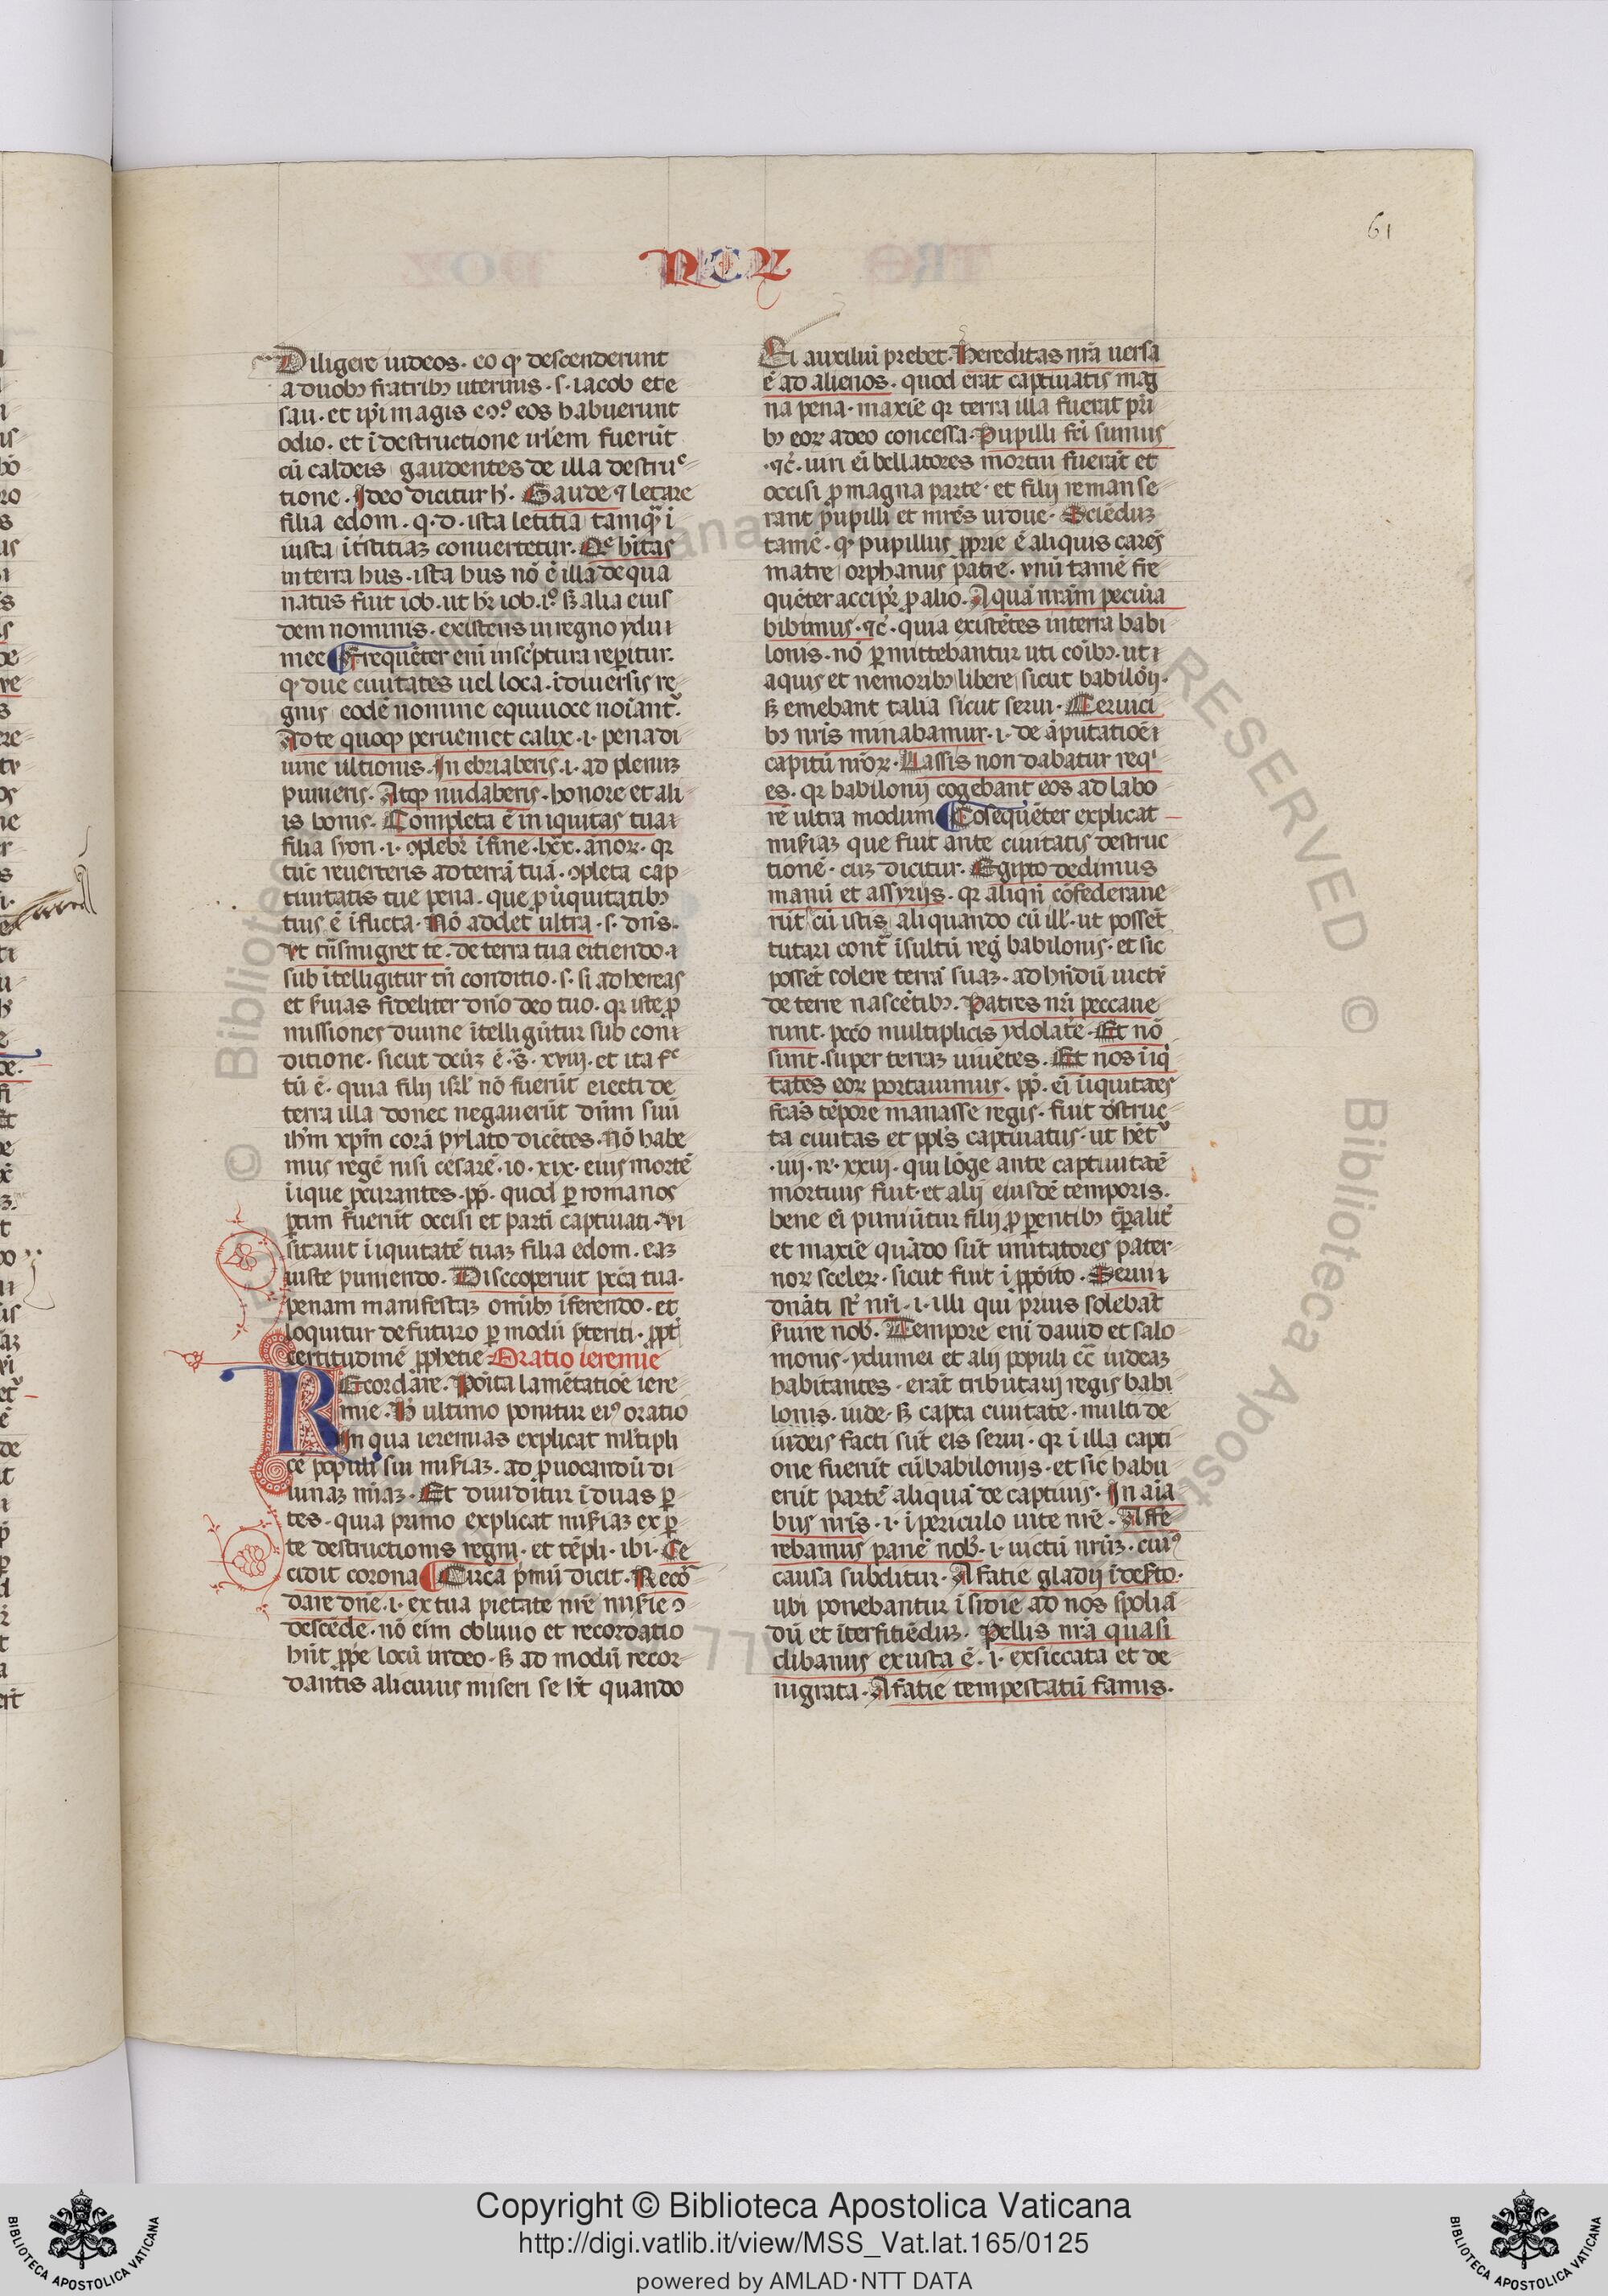 61
Diligere iudeos. eo qꝫ descenderunt
a duobꝫ fratribꝫ uterinis. s. iacob et e
sau. et ip̄i magis ꝯ° eos habuerunt
odio. et ī destructione irl̄em fuerūt
cū caldeis gaudentes de illa destruc
tione. Ideo dicitur h̄. Gaude ⁊ letare
filia edom. q. d. ista letitia tamqᷓ ī
iusta ī tristitiaꝫ conuertetur. Qᷓe hītas
in terra hus. ista hus nō ē illa de qua
natus fuit iob. ut hr̄ iob. i°. sꝫ alia eius
dem nominis. existens in regno ydu
mee ¶ Frequēter enī in scriptura reperitur.
qꝫ due ciuitates uel loca. ī diuersis re
gnis eodē nomine equiuoce noīant᷑.
Ad te quoqꝫ perueniet calix. i. pena di
uine ultionis. Inebriaberis. i. ad plenuꝫ
punieris. Atqꝫ nudaberis. honore et ali
is bonis. Completa ē iniquitas tua
filia syon. i. ꝯplebr̄ ī fine. lxx. ānoꝝ. qꝛ
tūc reuerteris ad terrā tuā. ꝯpleta cap
tiuitatis tue pena. que ꝓ īiquitatibꝫ
tuis ē īflicta. Nō addet ultra. s. dn̄s.
Vt trāsmigret te. de terra tua eiciendo. ⁊
sub ītelligitur tn̄ conditio. s. si adhereas
et ẜuias fideliter dn̄o deo tuo. qꝛ iste ꝓ
missiones diuine ītelligūtur sub con
ditione. sicut dcūꝫ ē. s̄. xviii. et ita fc̄
tū ē. quia filij isrl̄ nō fuerūt eiecti de
terra illa donec negauerūt dn̄m suū
ih̄m xp̄m corā pylato dicētes. Nō habe
mus regē nisi cesarē. io. xix. eius mortē
īique ꝓcurantes. ꝓp̄. quod ꝑ romanos
ꝑtim fuerūt occisi et partī captiuati. Vi
sitauit īiquitatē tuaꝫ filia edom. eaꝫ
iuste puniendo. Discooperuit pcc̄a tua.
penam manifestaꝫ om̄ibꝫ īferendo. et
loquitur de futuro ꝑ modū p̄teriti. ꝓpt̄
certitudinē ꝓphetie. Oratio ieremie
REcordare. Po᷑ita lamētatiōe iere
mie. H̄ ultimo ponitur eiꝰ oratio
In qua ieremias explicat ml̄tipli
cē populi sui miẜiaꝫ. ad ꝓuocandū di
uinaꝫ mīaꝫ. Et diuiditur ī duas ꝑ
tes. quia primo explicat miẜiaꝫ ex ꝑ
te destructionis regni. et tēpli. ibi. Ce
cidit corona ¶ Circa p̄mū dicit. Recor
dare dn̄e. i. ex tua pietate nr̄e miẜie ꝯ
descēde. nō eīm obliuio et recordatio
hn̄t ꝓpe locū in deo. sꝫ ad modū recor
dantis alicuius miseri se hꝫ quando
NCR
Ei auxiliū prebet. Hereditas nr̄a uersa
ē ad alienos. quod erat captiuatis mag
na pena. maxīe qꝛ terra illa fuerat p̄ri
bꝫ eoꝝ a deo concessa. Pupilli fc̄i sumus
⁊c̄. uiri eī bellatores mortui fuerāt et
occisi ꝓ magna parte. et filij remanse
rant pupilli et mr̄es uidue. Sciēduꝫ
tamē. qꝫ pupillus ꝓprie ē aliquis carēs
matre orphanus patre. vnū tamē fre
quēter accipr̄ ꝓ alio. Aquā nr̄am pecunia
bibimus. ⁊c̄. quia existētes in terra babi
lonis. nō ꝑmittebantur uti cōibꝫ. ut i
aquis et nemoribꝫ libere sicut babilōij.
sꝫ emebant talia sicut serui. Ceruici
bꝫ nr̄is minabamur. i. de āputatiōe
capitū nr̄oꝝ. Lassis non dabatur reqⁱ
es. qꝛ babilonij cogebant eos ad labo
rē ultra modum ¶ Cōsequēter explicat
miẜiaꝫ que fuit ante ciuitatis destruc
tionē. cuꝫ dicitur. Egipto dedimus
manū et assyrijs. qꝛ aliqn̄ cōfederaue
rūt cū istis aliquando cū ill̄. ut possēt
tutari contᷓ īsultū reg̃ babilonis. et sic
possēt colere terrā suaꝫ. ad hn̄dū uictū
de terre nascētibꝫ. Patres nr̄i peccaue
runt. pcc̄o multiplicis ydolat̄e. Et nō
sunt. super terraꝫ uiuētes. Et nos īiqⁱ
tates eoꝝ portauimus. ꝓp̄. eī īiquitates
fc̄as tēpore manasse regis. fuit dēstruc
ta ciuitas et ppl̄s captiuatus. ut hēt᷑
.iiij. R. xxiij. qui lōge ante captiuitatē
mortuus fuit. et alij eiusdē temporis.
bene eī puniūtur filij ꝓ ꝑentibꝫ tꝑalit̄
et maxīe quādo sūt imitatores pater
noꝝ sceleꝝ. sicut fuit ī ꝓpo᷑ito. Serui
dn̄ati st̄ nr̄i. i. illi qui prius solebāt
ẜuire nob̄. Tempore enī dauid et salo
monis. ydumei et alij populi cc̄ iudeaꝫ
habitantes. erāt tributarij regis babi
lonis. iude. sꝫ capta ciuitate. multi de
iudeis facti sūt eis serui. qꝛ ī illa capti
one fuerūt cū babilonijs. et sic habu
erūt partē aliquā de captiuis. In aīa
bus nr̄is. i. ī periculo uite nr̄e. Affe
rebamus panē nob̄. i. uictū nr̄ūꝫ. cuiꝰ
causa subditur. A facie gladij ī deẜto.
ubi ponebantur īsidie ad nos spoliā
dū et īterficiēduꝫ. Pellis nr̄a quasi
clibanus exusta ē. i. exsiccata et de
nigrata. A facie tempestatū famis.
Copyright © Biblioteca Apostolica Vaticana
http://digi.vatlib.it/view/MSS_Vat.lat.165/0125
powered by AMLAD·NTT DATA
BIBLIOTECA APOSTOLICA VATICANA
BIBLIOTECA APOSTOLICA VATICANA